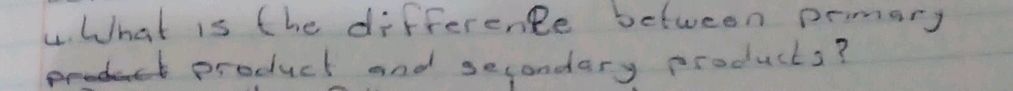 4. What is the difference between primary
product product and secondary products?